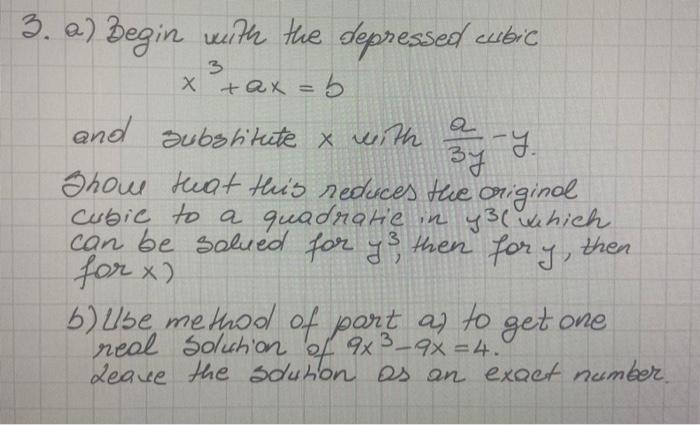 3. a) Begin with the depressed cubic
x³ + ax = b
and substitute x with a/3y - y.
Show that this reduces the original
cubic to a quadratic in y³ (which
can be solved for y³, then for y, then
for x)
b) Use method of part a) to get one
real solution of 9x³ - 9x = 4.
Leave the solution as an exact number.